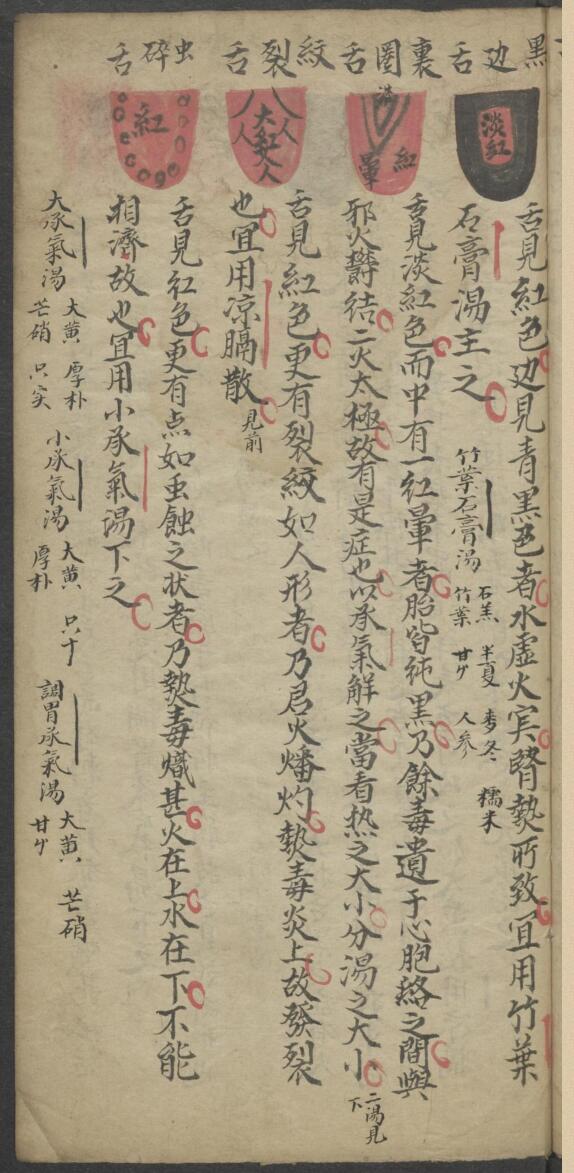 黑边舌
裏圈舌
紋裂舌
虫碎舌
淡紅
淡
紅
暈
人人
大紅
人人
紅
舌見紅色边見青黑色者水虛火实腎𤍠所致宜用竹葉
石膏湯主之
竹葉石膏湯
石羔 半夏 麦冬 糯米
竹葉 甘 人参
舌見淡紅色而中有一紅暈者胎皆純黑乃餘毒遺于心胞絡之間與
邪火欝结二火太極故有是症也以承氣解之當看热之大小分湯之大小
二湯見下
舌見紅色更有裂紋如人形者乃君火燔灼𤍠毒炎上故發裂
也宜用凉膈散
見前
舌見红色更有点如虫蝕之状者乃𤍠毒熾甚火在上水在下不能
相濟故也宜用小承氣湯下之
大承氣湯
大黄 厚朴
芒硝 只实
小承氣湯
大黄 只
厚朴
調胃承氣湯
大黄 芒硝
甘